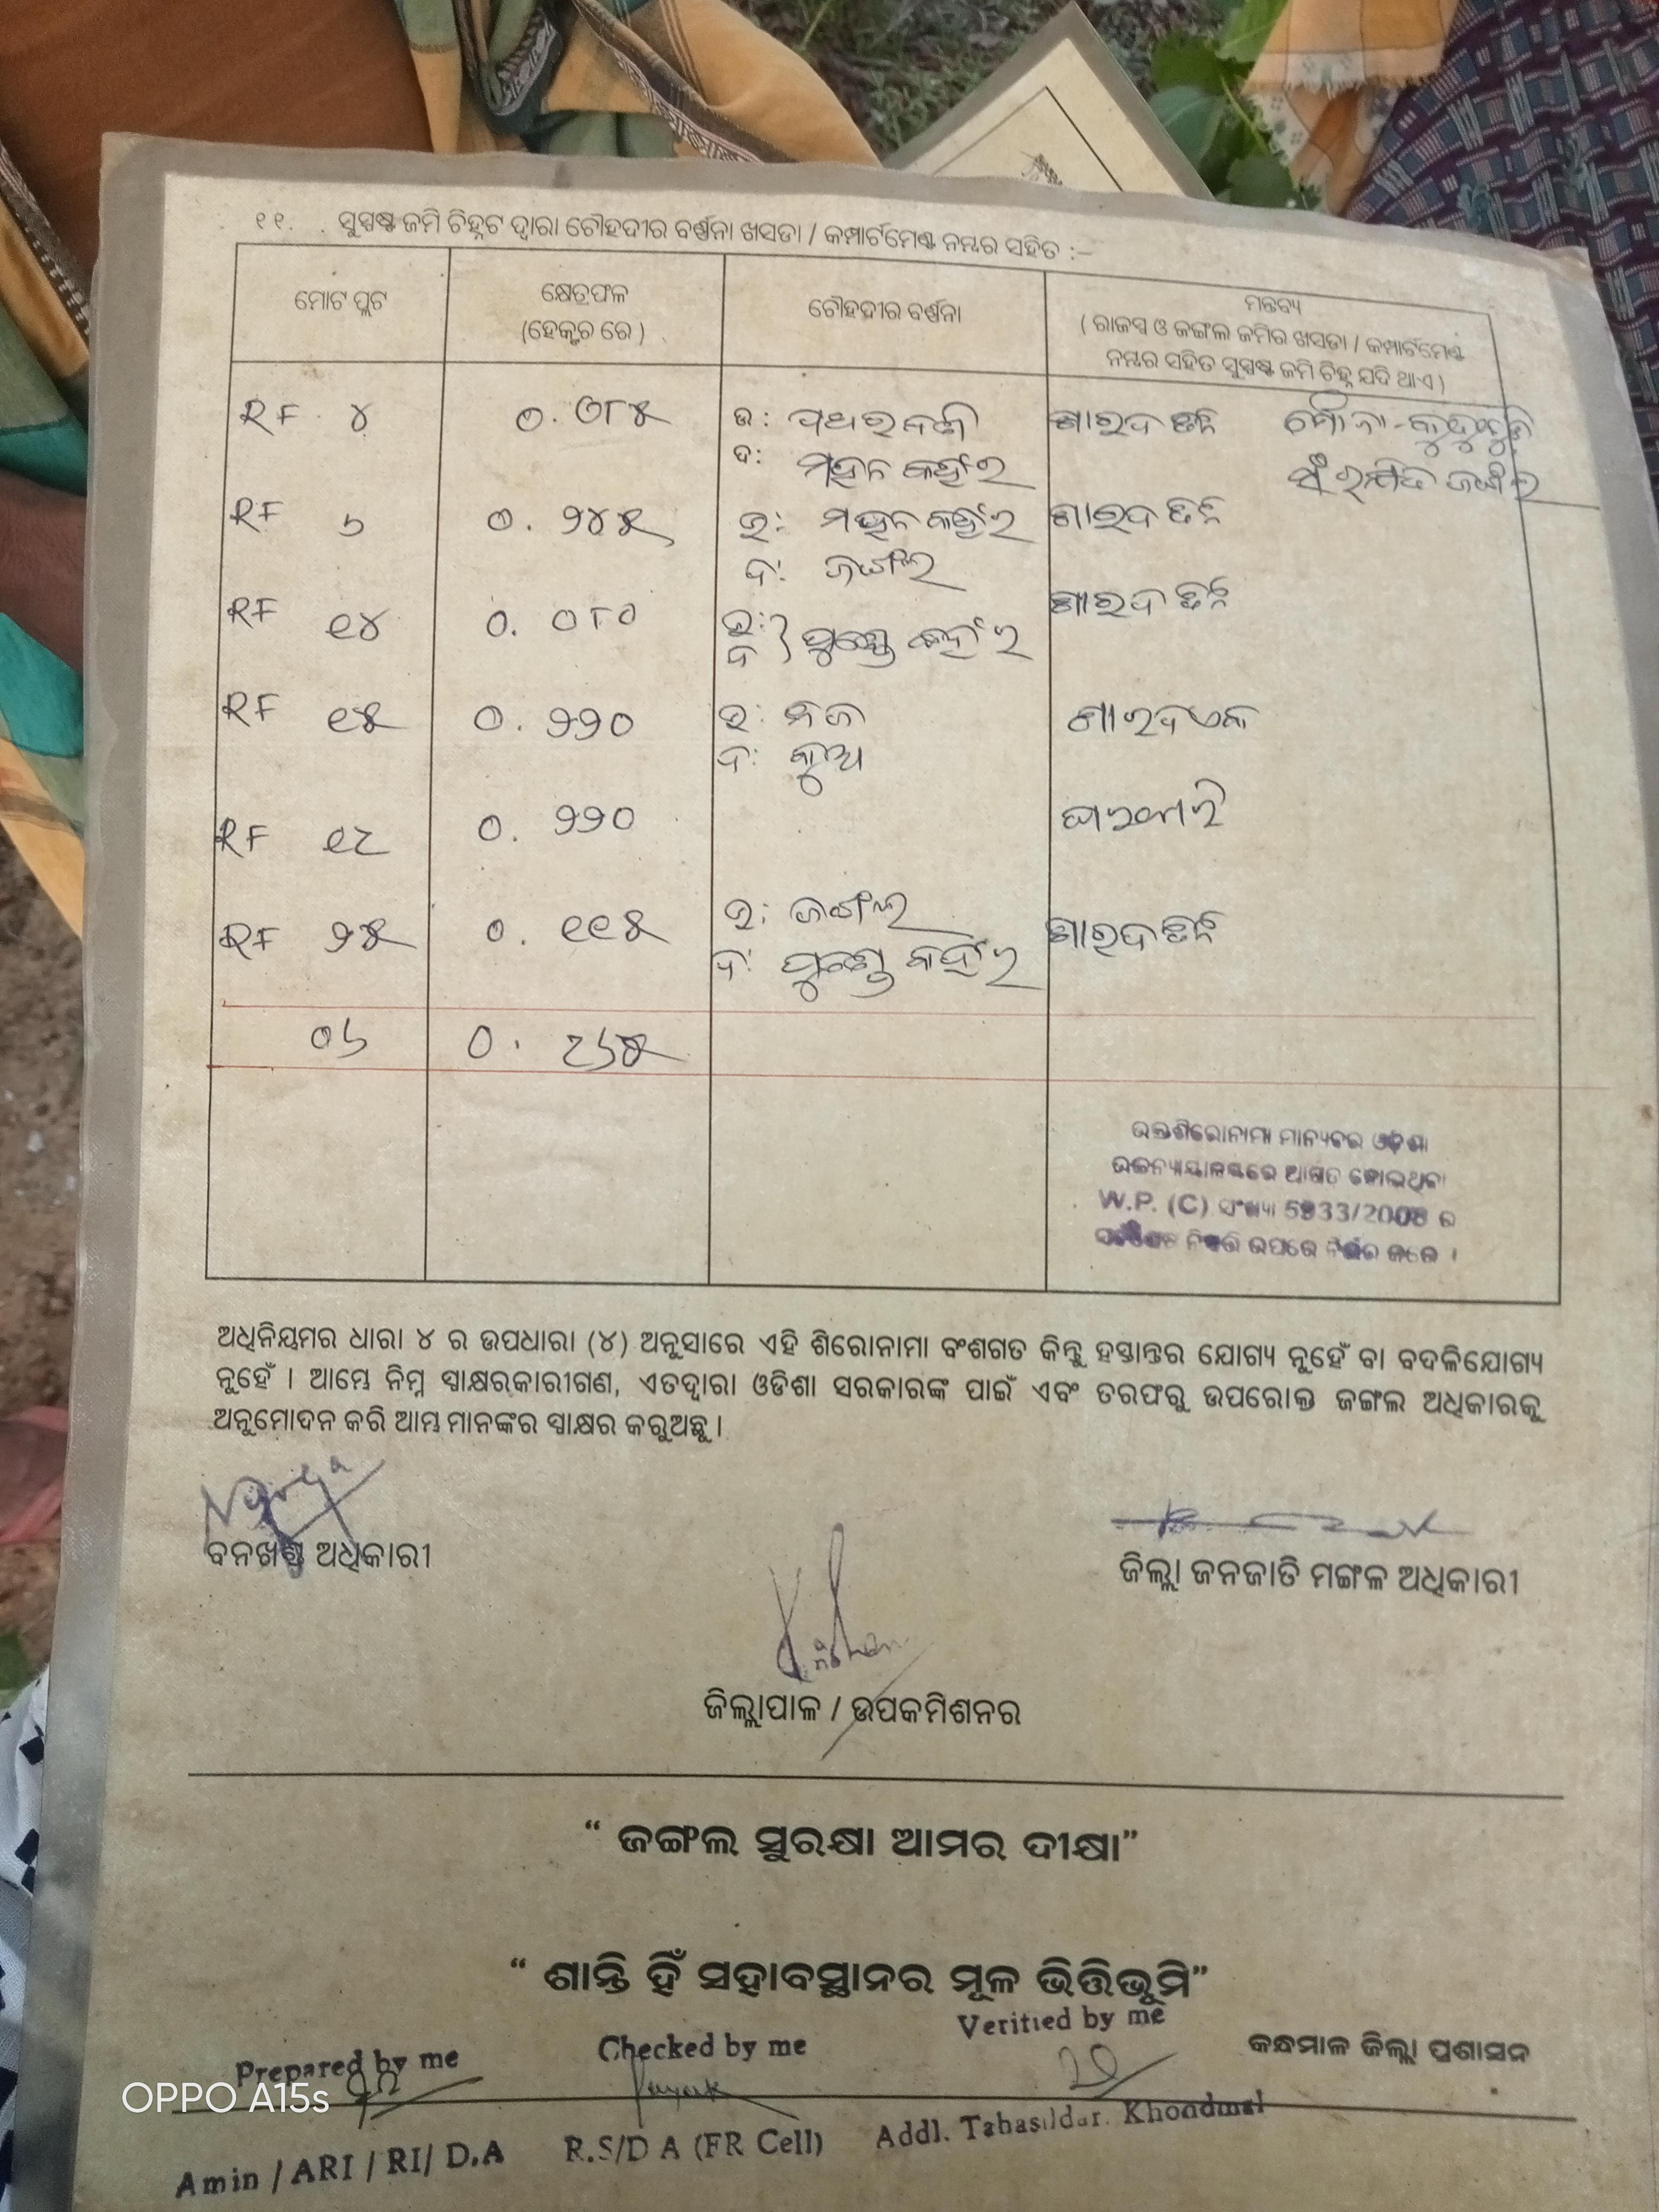 ୧୧. . ସୁସ୍ପଷ୍ଟ ଜମି ଚିହ୍ନଟ ଦ୍ୱାରା ଚୌହଦୀର ବର୍ଣ୍ଣନା ଖସଡା / କମ୍ପାର୍ଟମେଣ୍ଟ ନମ୍ବର ସହିତ :—
ମୋଟ ପ୍ଲଟ
କ୍ଷେତ୍ରଫଳ
(ହେକ୍ଟର ରେ)
ଚୌହଦୀର ବର୍ଣ୍ଣନା
ମନ୍ତବ୍ୟ
( ରାଜସ୍ୱ ଓ ଜଙ୍ଗଲ ଜମିର ଖସଡା / କମ୍ପାର୍ଟମେଣ୍ଟ
ନମ୍ବର ସହିତ ସୁସ୍ପଷ୍ଟ ଜମି ଚିହ୍ନ ଯଦି ଥାଏ )
RF ୪ ୦.୦୮୫ ଉ: ଶାରଦ ତିନି ମୌଜା-
ଦ: ମହନ କହଁର ଜଙ୍ଗଲ
RF ୬ ୦.୨୪୫ ଉ: ମହନ କହଁର ଶାରଦ ତିନି
ଦ: ଜଙ୍ଗଲ
RF ୧୪ ୦.୦୮୦ ଉ: ଦ କହଁର ଶାରଦ ତିନି
RF ୧୫ ୦.୨୨୦ ଉ: ନିଜ ଶାରଦ ଏକ
ଦ: କୁଅ
RF ୧୯ ୦.୨୨୦ ଘରବାରି
RF ୨୫ ୦.୧୧୫ ଉ: ଜଙ୍ଗଲ ଶାରଦ ତିନି
ଦ: କହଁର
୦୬ ୦.୯୬୫
ଉକ୍ତ ଶିରୋନାମା ମାନ୍ୟବର ଓଡ଼ିଶା
ଉଚ୍ଚନ୍ୟାୟାଳୟରେ ଆଗତ ହୋଇଥିବା
W.P. (C) ସଂଖ୍ୟା 5933/2008 ର
ଉପରେ ନିର୍ଭର କରେ ।
ଅଧିନିୟମର ଧାରା ୪ ର ଉପଧାରା (୪) ଅନୁସାରେ ଏହି ଶିରୋନାମା ବଂଶଗତ କିନ୍ତୁ ହସ୍ତାନ୍ତର ଯୋଗ୍ୟ ନୁହେଁ ବା ବଦଳିଯୋଗ୍ୟ
ନୁହେଁ । ଆମ୍ଭେ ନିମ୍ନ ସ୍ୱାକ୍ଷରକାରୀଗଣ, ଏତଦ୍ୱାରା ଓଡିଶା ସରକାରଙ୍କ ପାଇଁ ଏବଂ ତରଫରୁ ଉପରୋକ୍ତ ଜଙ୍ଗଲ ଅଧିକାରକୁ
ଅନୁମୋଦନ କରି ଆମ୍ଭ ମାନଙ୍କର ସ୍ୱାକ୍ଷର କରୁଅଛୁ ।
ବନଖଣ୍ଡ ଅଧିକାରୀ
ଜିଲ୍ଲା ଜନଜାତି ମଙ୍ଗଳ ଅଧିକାରୀ
ଜିଲ୍ଲାପାଳ / ଉପକମିଶନର
“ ଜଙ୍ଗଲ ସୁରକ୍ଷା ଆମର ଦୀକ୍ଷା”
“ ଶାନ୍ତି ହିଁ ସହାବସ୍ଥାନର ମୂଳ ଭିତ୍ତିଭୂମି”
Prepared by me Checked by me Verified by me କନ୍ଧମାଳ ଜିଲ୍ଲା ପ୍ରଶାସନ
OPPO A15s
Amin / ARI / RI/ D.A R.S/D A (FR Cell) Addl. Tahasildar. Khondmal